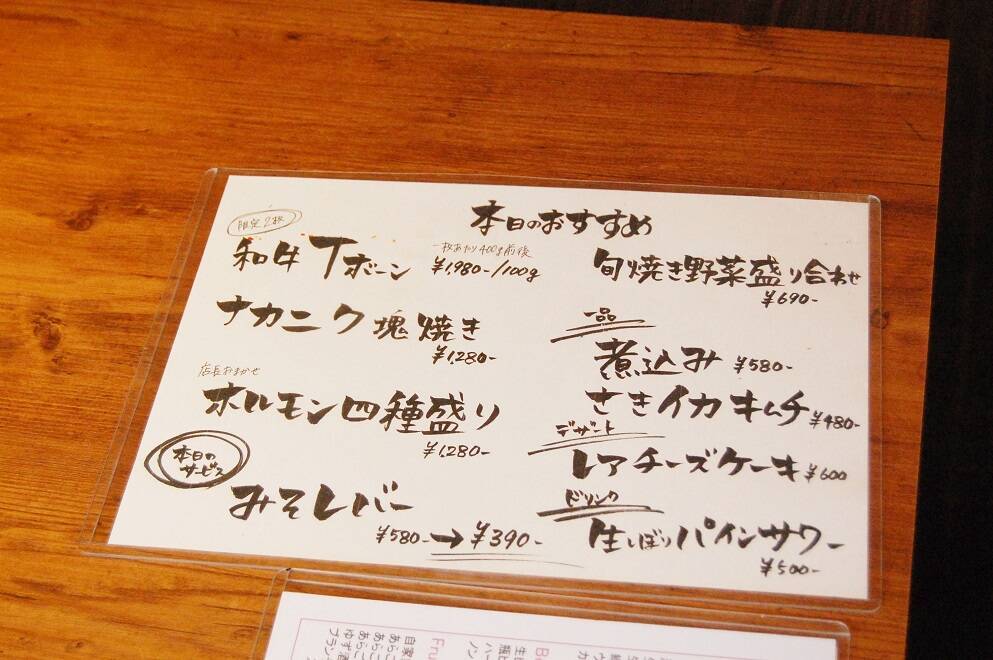 本日のおすすめ
限定2枚
和牛Tボーン
一枚あたり400g前後
¥1,980-/100g
ナカニク塊焼き
¥1,280-
店長おまかせ
ホルモン四種盛り
¥1,280-
本日の
サービス
みそレバー
¥580-→¥390-
旬焼き野菜盛り合わせ
¥690-
一品
煮込み ¥580-
さきイカキムチ ¥480-
デザート
レアチーズケーキ ¥600
ドリンク
生しぼりパインサワー
¥500-